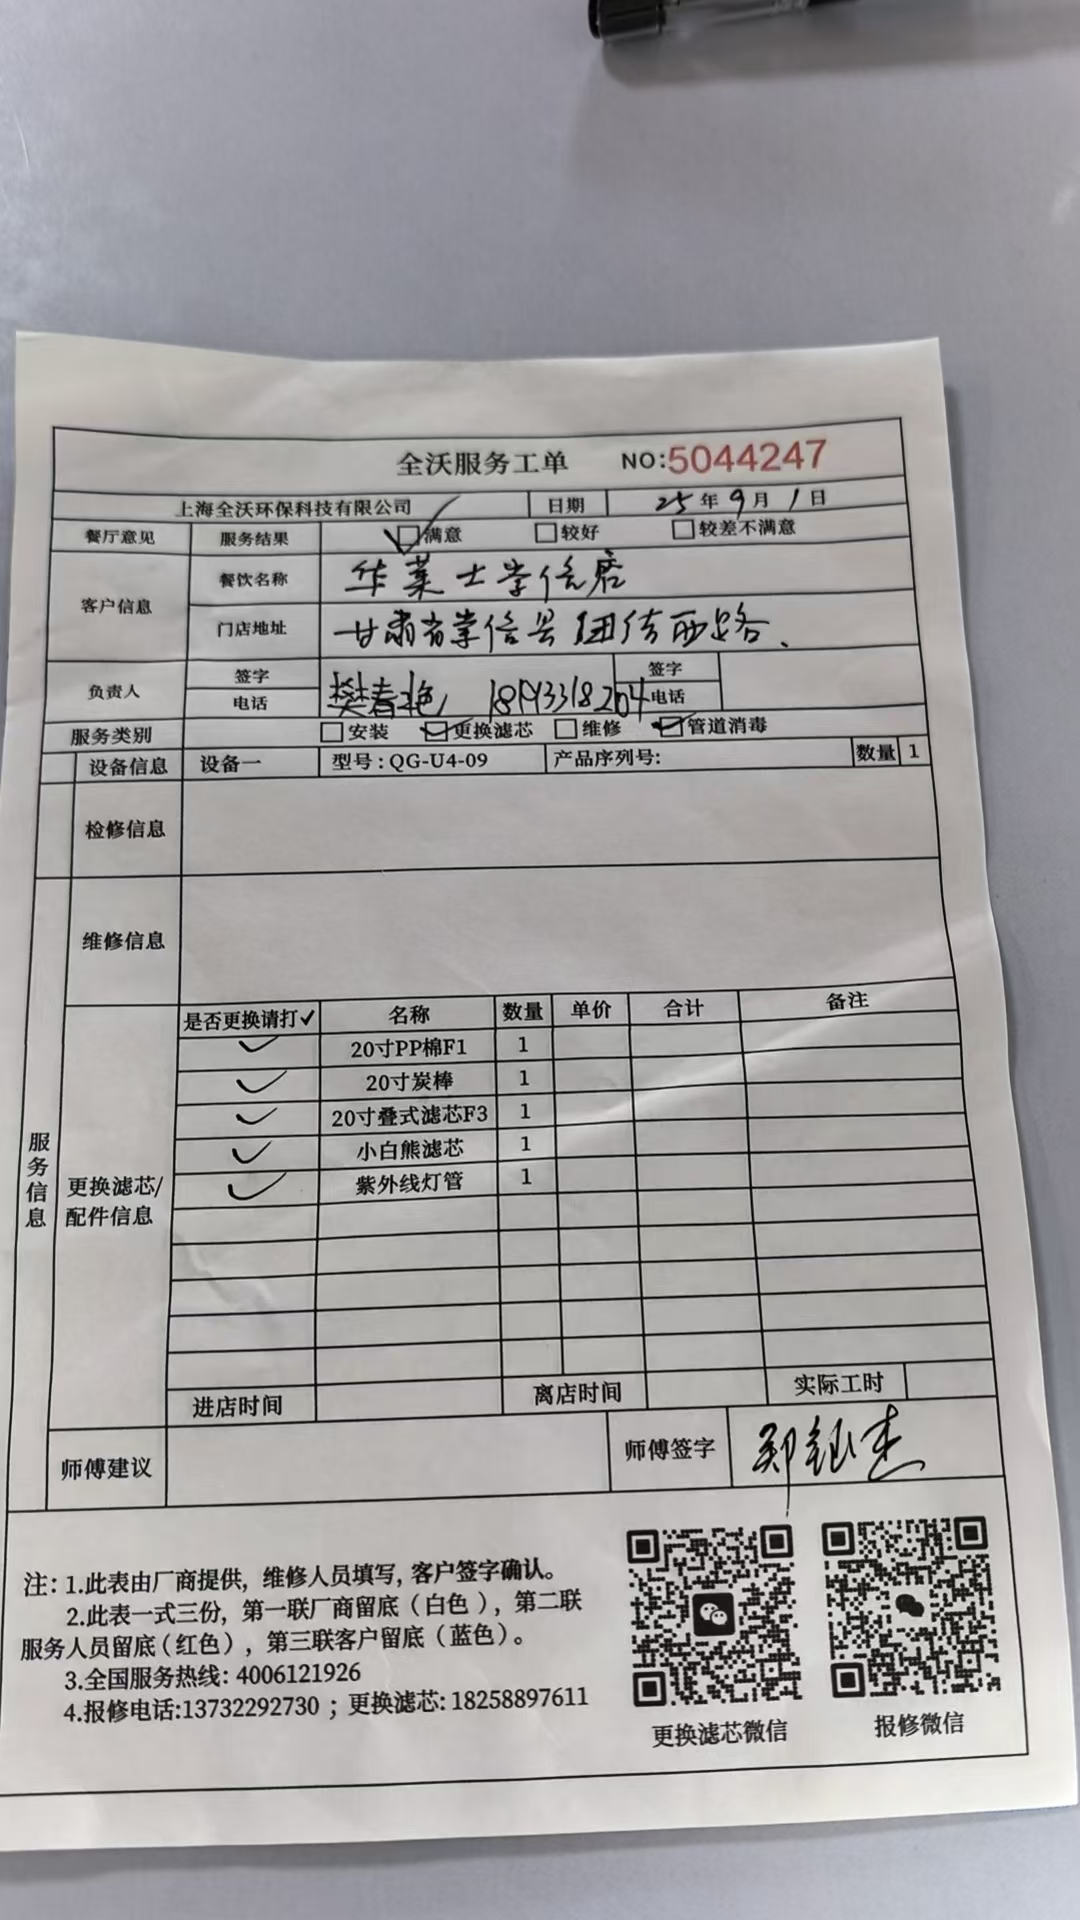 全沃服务工单 NO:5044247
上海全沃环保科技有限公司 日期 25年9月1日
餐厅意见 服务结果 满意 较好 较差不满意
客户信息 餐饮名称 华莱士崇信店
门店地址 甘肃省崇信县团结西路
负责人 签字 樊春艳 签字
电话 电话
服务类别 安装 更换滤芯 维修 管道消毒
设备信息 设备一 型号:QG-U4-09 产品序列号: 数量 1
检修信息
维修信息
服务信息
更换滤芯/配件信息
是否更换请打✓ 名称 数量 单价 合计 备注
✓ 20寸PP棉F1 1
✓ 20寸炭棒 1
✓ 20寸叠式滤芯F3 1
✓ 小白熊滤芯 1
✓ 紫外线灯管 1
进店时间 离店时间 实际工时
师傅建议 师傅签字
注: 1.此表由厂商提供, 维修人员填写, 客户签字确认。
2.此表一式三份, 第一联厂商留底(白色), 第二联
服务人员留底(红色), 第三联客户留底(蓝色)。
3.全国服务热线: 4006121926
4.报修电话:13732292730 ; 更换滤芯: 18258897611
更换滤芯微信 报修微信